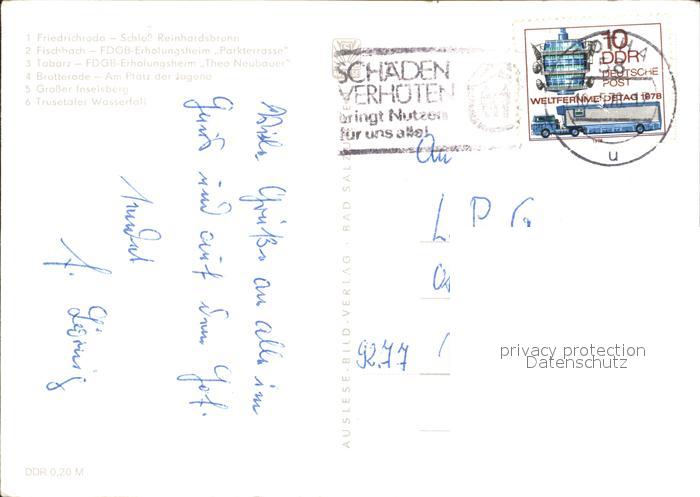 1 Friedrichroda – Schloß Reinhardsbrunn
2 Fischbach – FDGB-Erholungsheim „Parkterrasse"
3 Tabarz – FDGB-Erholungsheim „Theo Neubauer"
4 Brotterode – Am Platz der Jugend
5 Großer Inselsberg
6 Trusetaler Wasserfall
Viele Grüße an alle im
und auf dem Hof.
DDR 0,20 M
AUSLESE-BILD-VERLAG · BAD SALZU
SCHÄDEN
VERHÜTEN
bringt Nutzen
für uns alle!
10
DDR
DEUTSCHE
POST
WELTFERNMELDETAG 1978
u
An
L P G
9277
privacy protection
Datenschutz